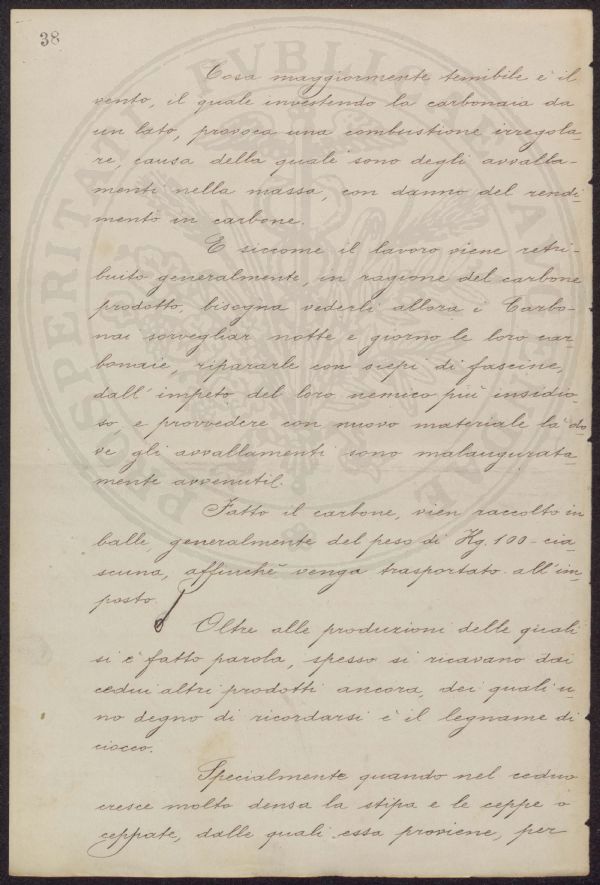 38
Cosa maggiormente temibile è il
vento, il quale investendo la carbonaia da
un lato, provoca una combustione irregola-
re, causa della quale sono degli avvalla-
menti nella massa, con danno del rendi-
mento in carbone.
E siccome il lavoro viene retri-
buito generalmente, in ragione del carbone
prodotto, bisogna vederli allora i Carbo-
nai sorvegliar notte e giorno le loro car-
bonaie, ripararle con siepi di fascine,
dall'impeto del loro nemico più insidio-
so e provvedere con nuovo materiale là do-
ve gli avvallamenti sono malaugurata-
mente avvenuti.
Fatto il carbone, vien raccolto in
balle, generalmente del peso di Kg. 100 - cia-
scuna, affinchè venga trasportato all'im-
posto.
Oltre alle produzioni delle quali
si è fatto parola, spesso si ricavano dai
cedui altri prodotti ancora, dei quali u-
no degno di ricordarsi è il legname di
ciocco.
Specialmente quando nel ceduo
cresce molto densa la stipa e le ceppe o
ceppate, dalle quali essa proviene, per